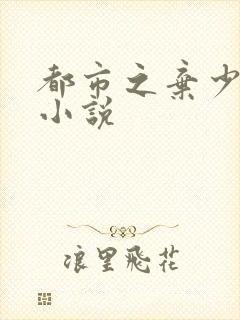 都市之棄少
小説
浪里飛花